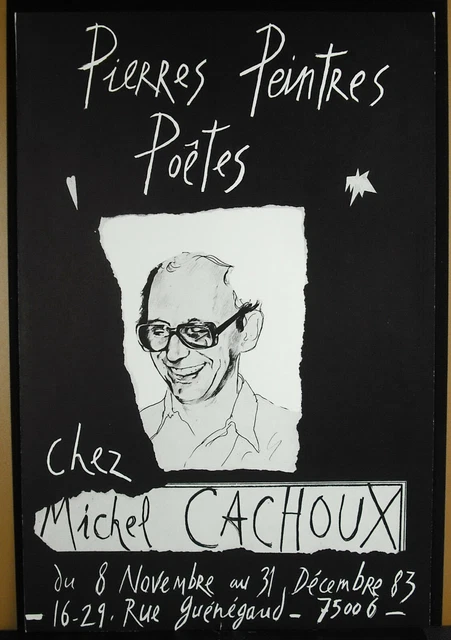 Pierres Peintres
Poêtes
chez
Michel CACHOUX
du 8 Novembre au 31 Décembre 83
— 16-29, Rue Guénégaud — 75006 —